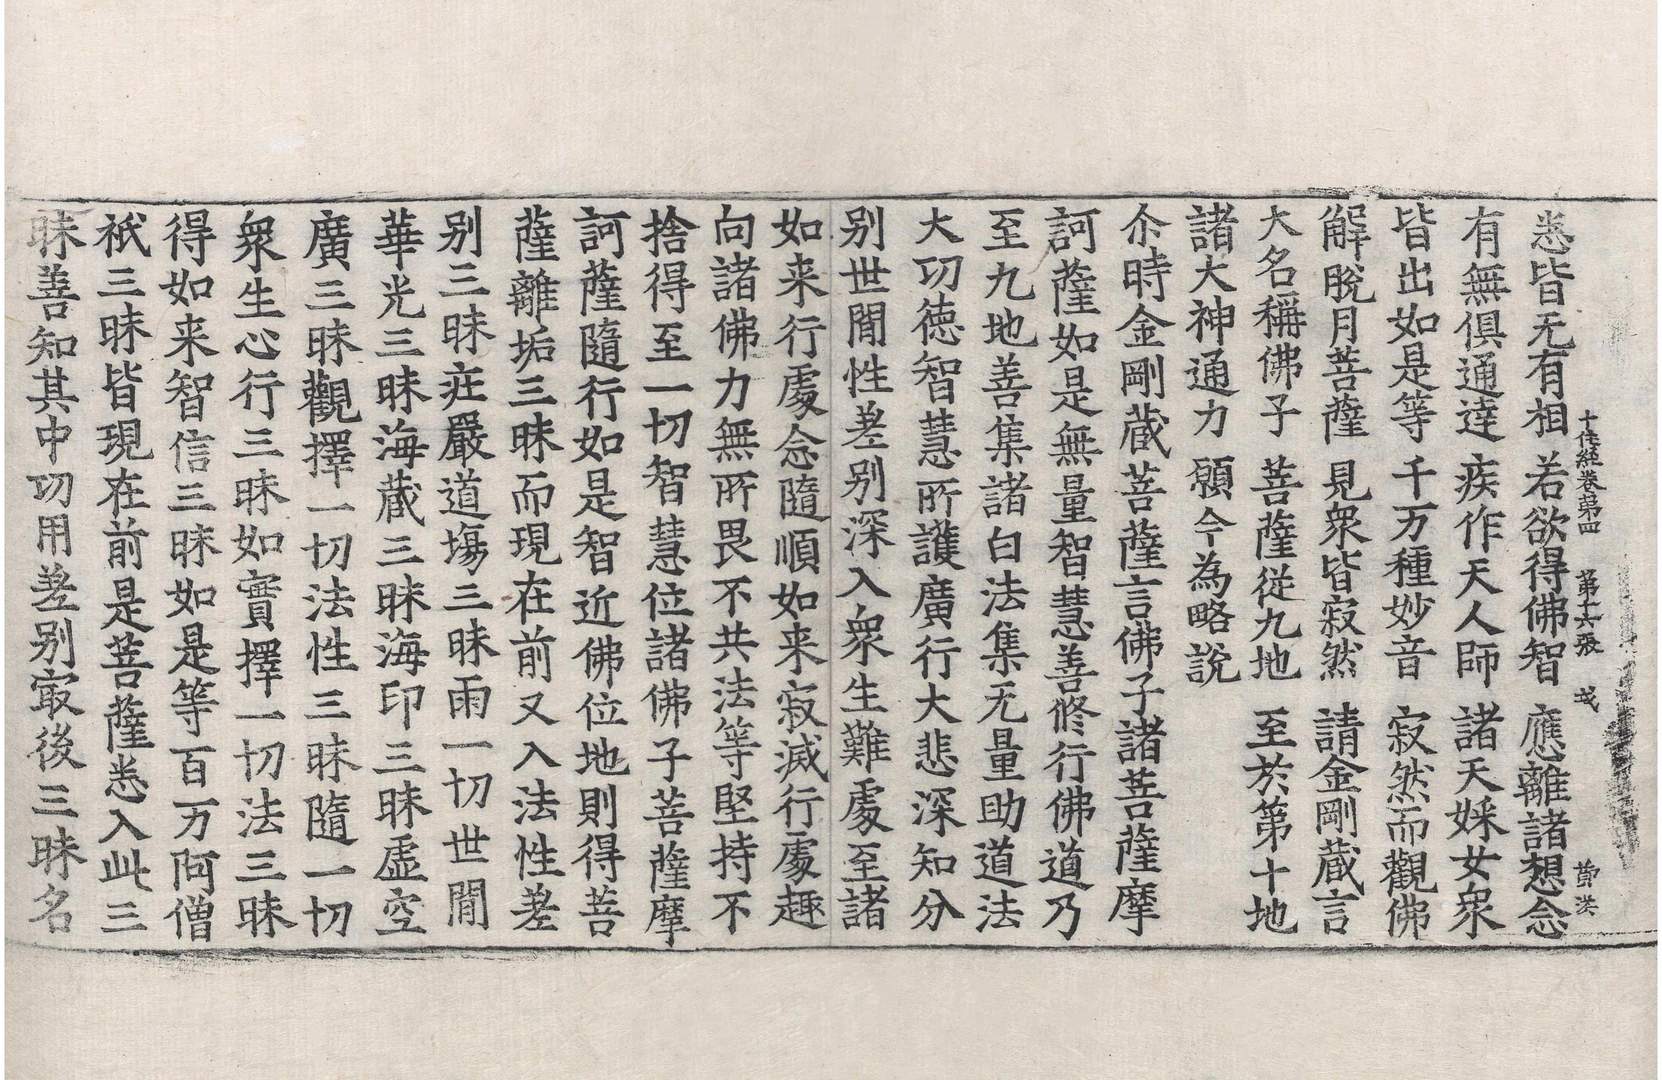 十住經卷第四　第十六張　㦯　黄洪
悉皆无有相　若欲得佛智　應離諸想念
有無俱通達　疾作天人師　諸天婇女衆
皆出如是等　千万種妙音　寂然而觀佛
解脫月菩薩　見衆皆寂然　請金剛藏言
大名稱佛子　菩薩從九地　至於第十地
諸大神通力　願今為略說
尒時金剛藏菩薩言佛子諸菩薩摩
訶薩如是無量智慧善修行佛道乃
至九地善集諸白法集无量助道法
大功德智慧所護廣行大悲深知分
别世間性差别深入衆生難處至諸
如来行處念隨順如来寂滅行處趣
向諸佛力無所畏不共法等堅持不
捨得至一切智慧位諸佛子菩薩摩
訶薩隨行如是智近佛位地則得菩
薩離垢三昧而現在前又入法性差
别三昧莊嚴道場三昧雨一切世間
華光三昧海藏三昧海印三昧虛空
廣三昧觀擇一切法性三昧隨一切
衆生心行三昧如實擇一切法三昧
得如来智信三昧如是等百万阿僧
祇三昧皆現在前是菩薩悉入此三
昧善知其中功用差别㝡後三昧名